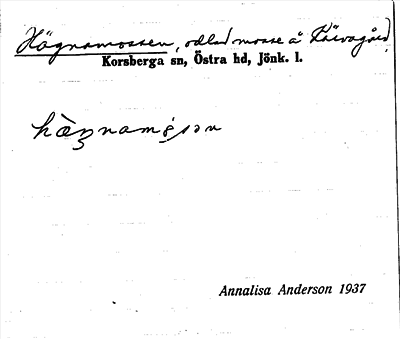 Högnamossen, odlad mosse å
Korsberga sn, Östra hd, Jönk. l.
Annalisa Anderson 1937